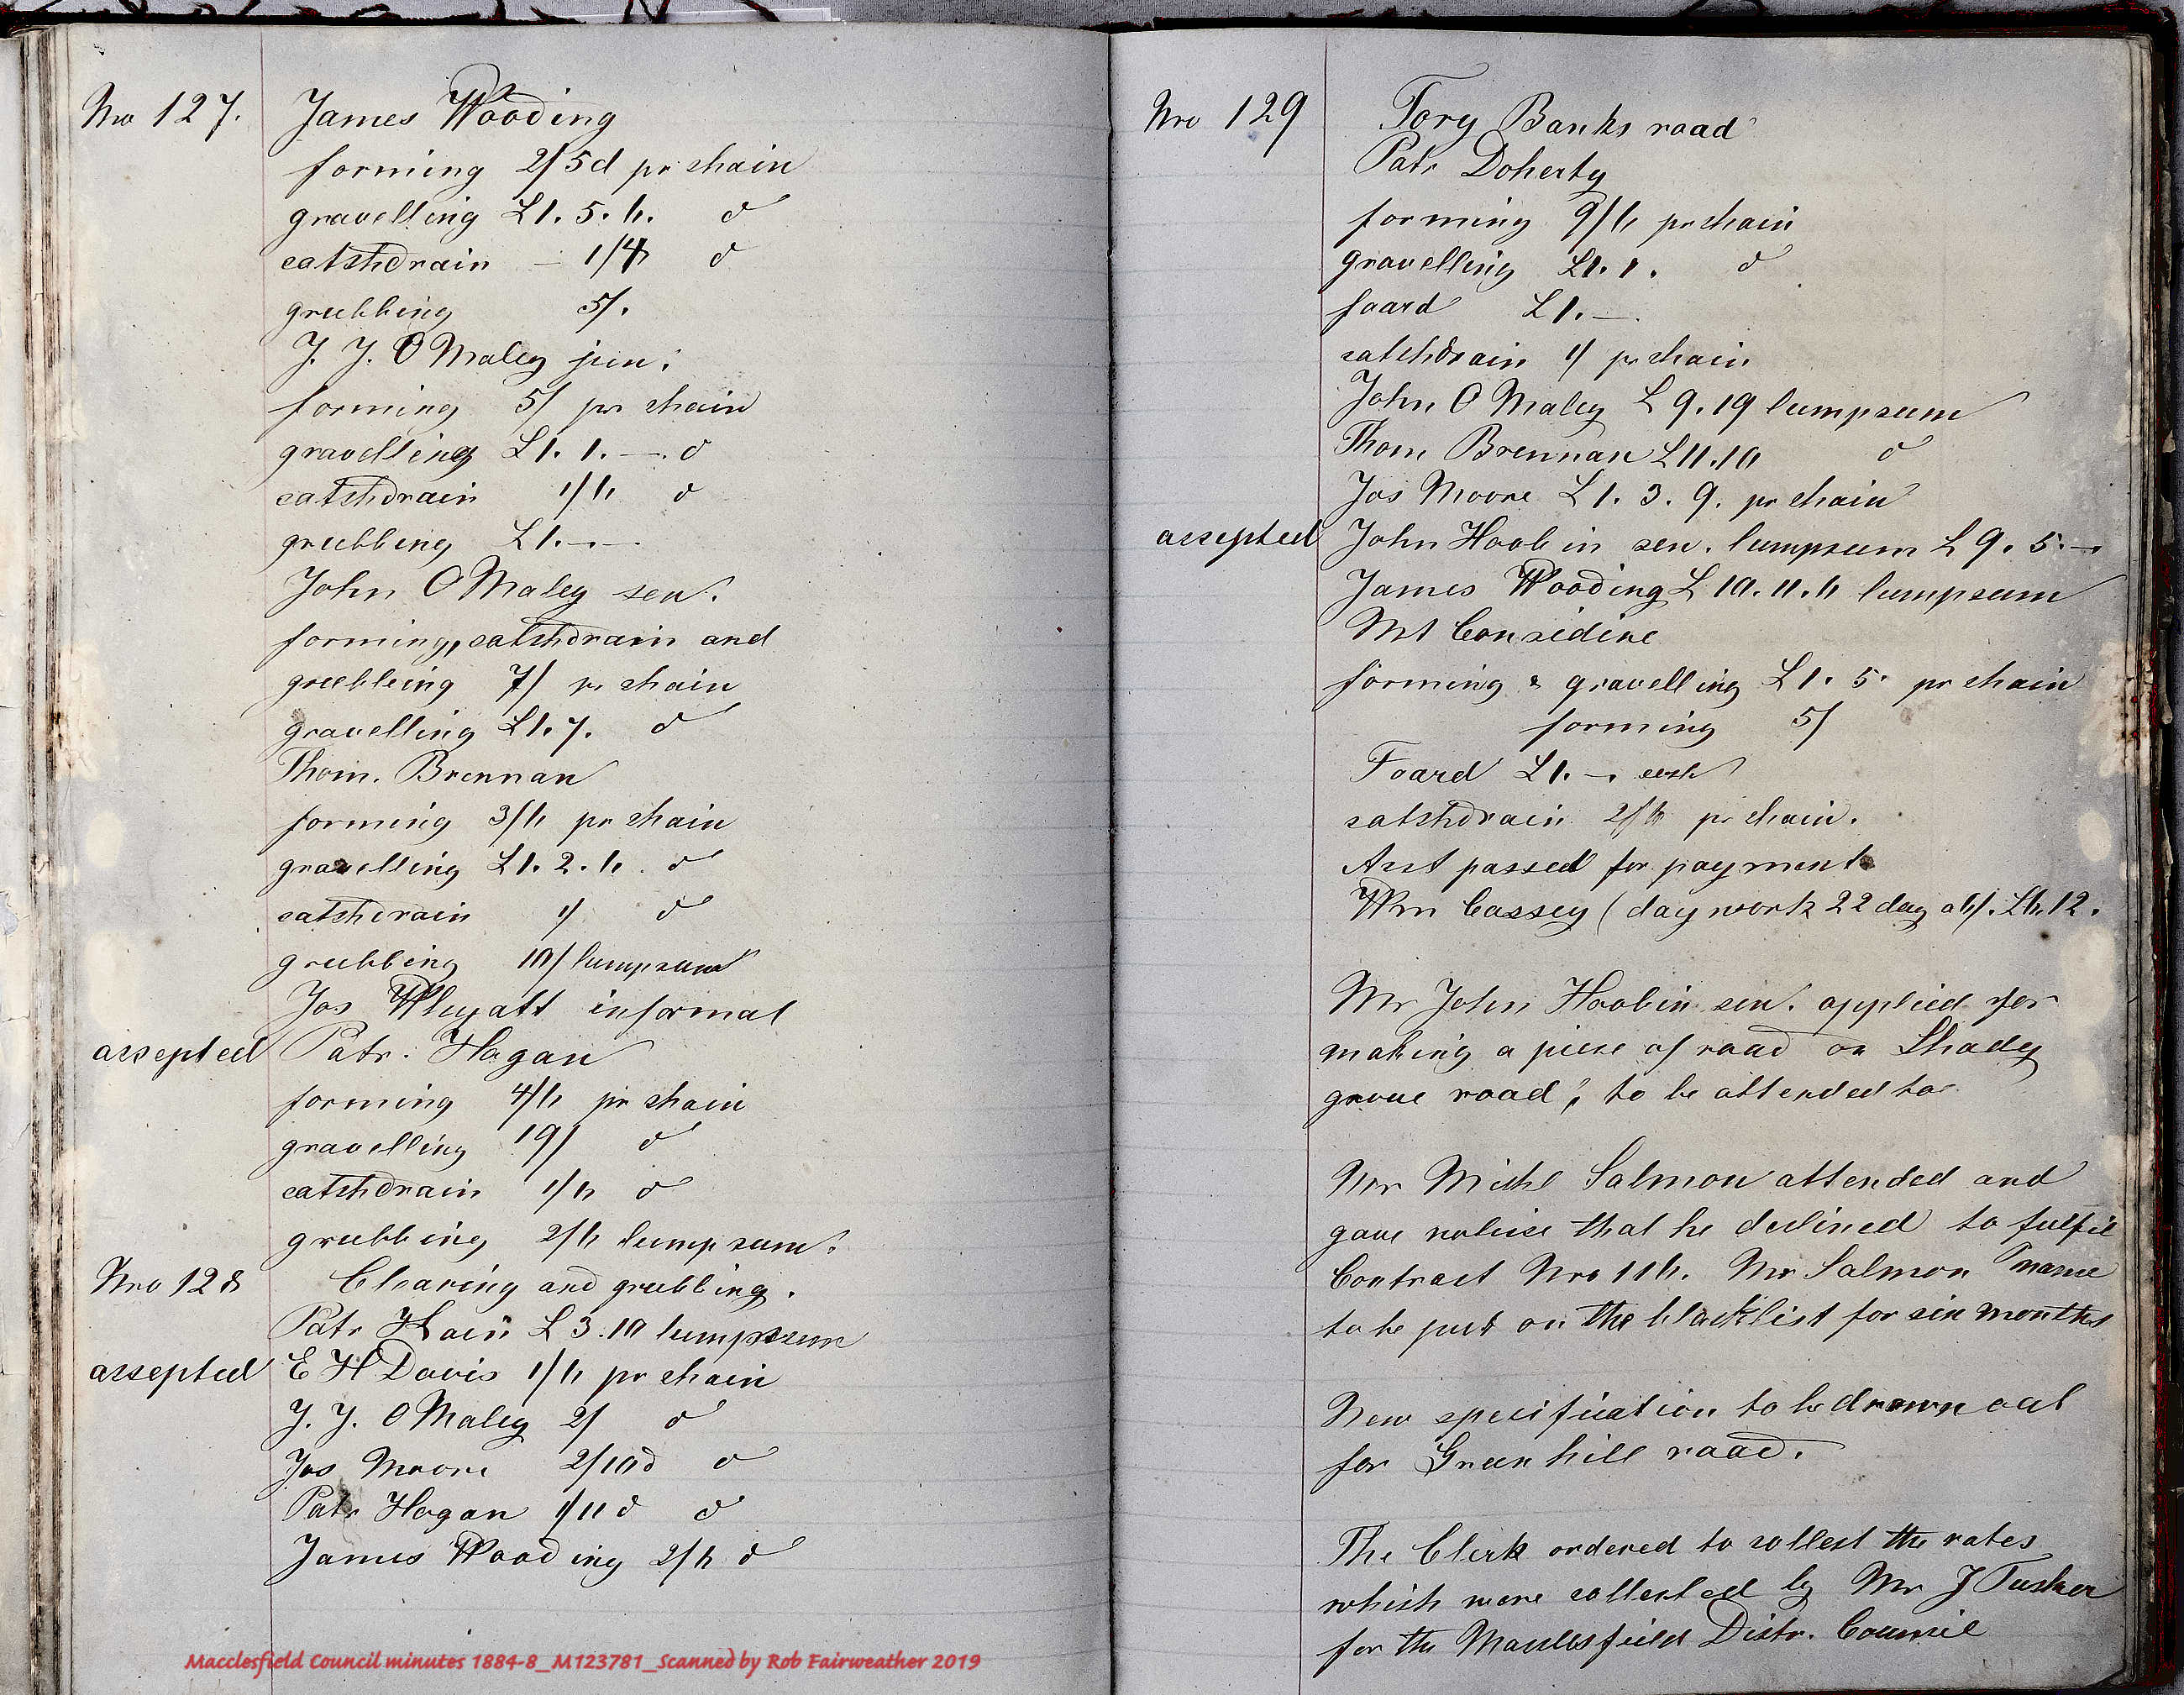 Nro 127. James Wooding
forming 2/5d pr chain
gravelling £1. 5. 6. do
catchdrain — 1/4 do
grubbing 5/.
J. J. O Maley jun.
forming 5/ pr chain
gravelling £1. 1. —. do
catchdrain 1/6 do
grubbing £1. — . —
John O Maley sen.
forming, catchdrain and
grubbing 7/ pr chain
gravelling £1. 7. do
Thom. Brennan
forming 3/6 pr chain
gravelling £1. 2. 6. do
catchdrain 1/ do
grubbing 10/ lumpsum
Jos Whyatt informal
accepted Patr. Hogan
forming 4/6 pr chain
gravelling 19/ do
catchdrain 1/6 do
grubbing 2/6 lumpsum.
Nro 128 Clearing and grubbing.
Patr Hain £3.10 lumpsum
accepted E H Davis 1/6 pr chain
J. J. O Maley 2/ do
Jos Moore 2/10d do
Patr Hogan 1/11d do
James Wooding 2/6 do
Macclesfield Council minutes 1884-8_M123781_Scanned by Rob Fairweather 2019
Nro 129 Tory Banks road
Patr Doherty
forming 9/6 pr chain
gravelling £1. 1. do
foard £1. —.
catchdrain 1/ pr chain
John O Maley £9.19 lumpsum
Thom Brennan £11.10 do
Jos Moore £1. 3. 9. pr chain
accepted John Hoobin sen. lumpsum £9. 5. —
James Wooding £10. 11. 6 lumpsum
Mt Considine
forming & gravelling £1. 5. pr chain
forming 5/
Foard £1. —. each
catchdrain 2/6 pr chain.
Acct passed for payment
Wm Cassey (day work 22 day a 6/. £6.12.
Mr John Hoobin sen. applied for
making a piece of road on Shady
grove road, to be attended to
Mr Michl Salmon attended and
gave notice that he declined to fulfil
Contract Nro 116. Mr Salmon name
to be put on the blacklist for six months
New specification to be drawn out
for Green hill road.
The Clerk ordered to collect the rates
which were collected by Mr J Tucker
for the Macclesfield Distr. Council